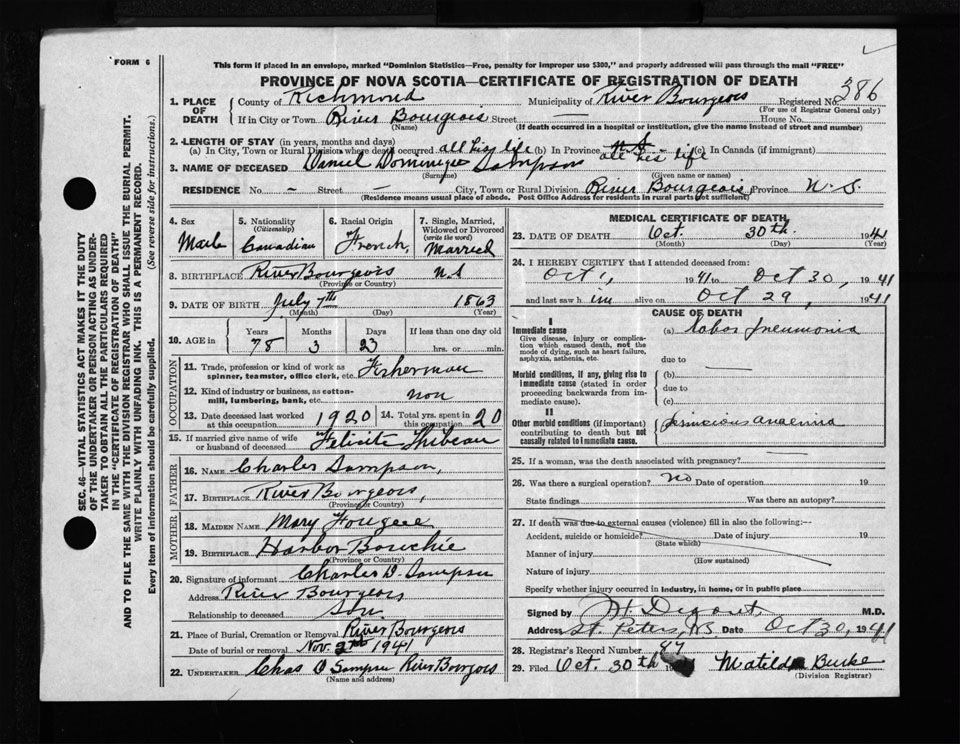 FORM 6
This form if placed in an envelope, marked "Dominion Statistics—Free, penalty for improper use $300," and properly addressed will pass through the mail "FREE"
PROVINCE OF NOVA SCOTIA—CERTIFICATE OF REGISTRATION OF DEATH
386
1. PLACE OF DEATH
County of Richmond Municipality of River Bourgeois Registered No.
(For use of Registrar General only)
If in City or Town River Bourgeois Street — House No.
(Name) (If death occurred in a hospital or institution, give the name instead of street and number)
2. LENGTH OF STAY (in years, months and days)
(a) In City, Town or Rural Division where death occurred all his life (b) In Province all his life (c) In Canada (if immigrant)
3. NAME OF DECEASED Daniel Sampson
(Surname) (Given name or names)
RESIDENCE No. – Street — City, Town or Rural Division River Bourgeois Province N.S.
(Residence means usual place of abode. Post Office Address for residents in rural parts not sufficient)
4. Sex
Male
5. Nationality (Citizenship)
Canadian
6. Racial Origin
French
7. Single, Married, Widowed or Divorced (write the word)
Married
8. BIRTHPLACE River Bourgeois N.S
(Province or Country)
9. DATE OF BIRTH July 7th 1863
(Month) (Day) (Year)
10. AGE in
Years Months Days If less than one day old
78 3 23 hrs. or min.
OCCUPATION
11. Trade, profession or kind of work as spinner, teamster, office clerk, etc. Fisherman
12. Kind of industry or business, as cotton-mill, lumbering, bank, etc. non
13. Date deceased last worked at this occupation 1920 14. Total yrs. spent in this occupation 20
15. If married give name of wife or husband of deceased Felicite Thibeau
FATHER
16. NAME Charles Sampson,
17. BIRTHPLACE River Bourgeois,
(Province or Country)
MOTHER
18. MAIDEN NAME Mary Fougere
19. BIRTHPLACE Harbor Bouchie
(Province or Country)
20. Signature of informant Charles D. Sampson
Address River Bourgeois
Relationship to deceased Son
21. Place of Burial, Cremation or Removal River Bourgeois
Date of burial or removal Nov. 2nd 1941
22. UNDERTAKER Chas D Sampson River Bourgeois
(Name and address)
MEDICAL CERTIFICATE OF DEATH
23. DATE OF DEATH Oct. 30th. 1941
(Month) (Day) (Year)
24. I HEREBY CERTIFY that I attended deceased from:
Oct 1, 1941 to Oct 30, 1941
and last saw him alive on Oct 29, 1941
CAUSE OF DEATH
I
Immediate cause (a) Lobar Pneumonia
Give disease, injury or complication which caused death, not the mode of dying, such as heart failure, asphyxia, asthenia, etc.
due to
Morbid conditions, if any, giving rise to immediate cause (stated in order proceeding backwards from immediate cause).
(b)
due to
(c)
II
Other morbid conditions (if important) contributing to death but not causally related to immediate cause.
Pernicious anaemia
25. If a woman, was the death associated with pregnancy?
26. Was there a surgical operation? no Date of operation 19
State findings Was there an autopsy?
27. If death was due to external causes (violence) fill in also the following:—
Accident, suicide or homicide? Date of injury 19
(State which)
Manner of injury
(How sustained)
Nature of injury
Specify whether injury occurred in industry, in home, or in public place
Signed by M.D.
Address St. Peters, N.S. Date Oct 30, 1941
28. Registrar's Record Number 87
29. Filed Oct. 30th 19 Matilda Burke
(Division Registrar)
SEC. 46—VITAL STATISTICS ACT MAKES IT THE DUTY
OF THE UNDERTAKER OR PERSON ACTING AS UNDER-
TAKER TO OBTAIN ALL THE PARTICULARS REQUIRED
IN THE "CERTIFICATE OF REGISTRATION OF DEATH"
AND TO FILE THE SAME WITH THE DIVISION REGISTRAR WHO SHALL ISSUE THE BURIAL PERMIT.
WRITE PLAINLY WITH UNFADING INK. THIS IS A PERMANENT RECORD.
Every item of information should be carefully supplied. (See reverse side for instructions.)